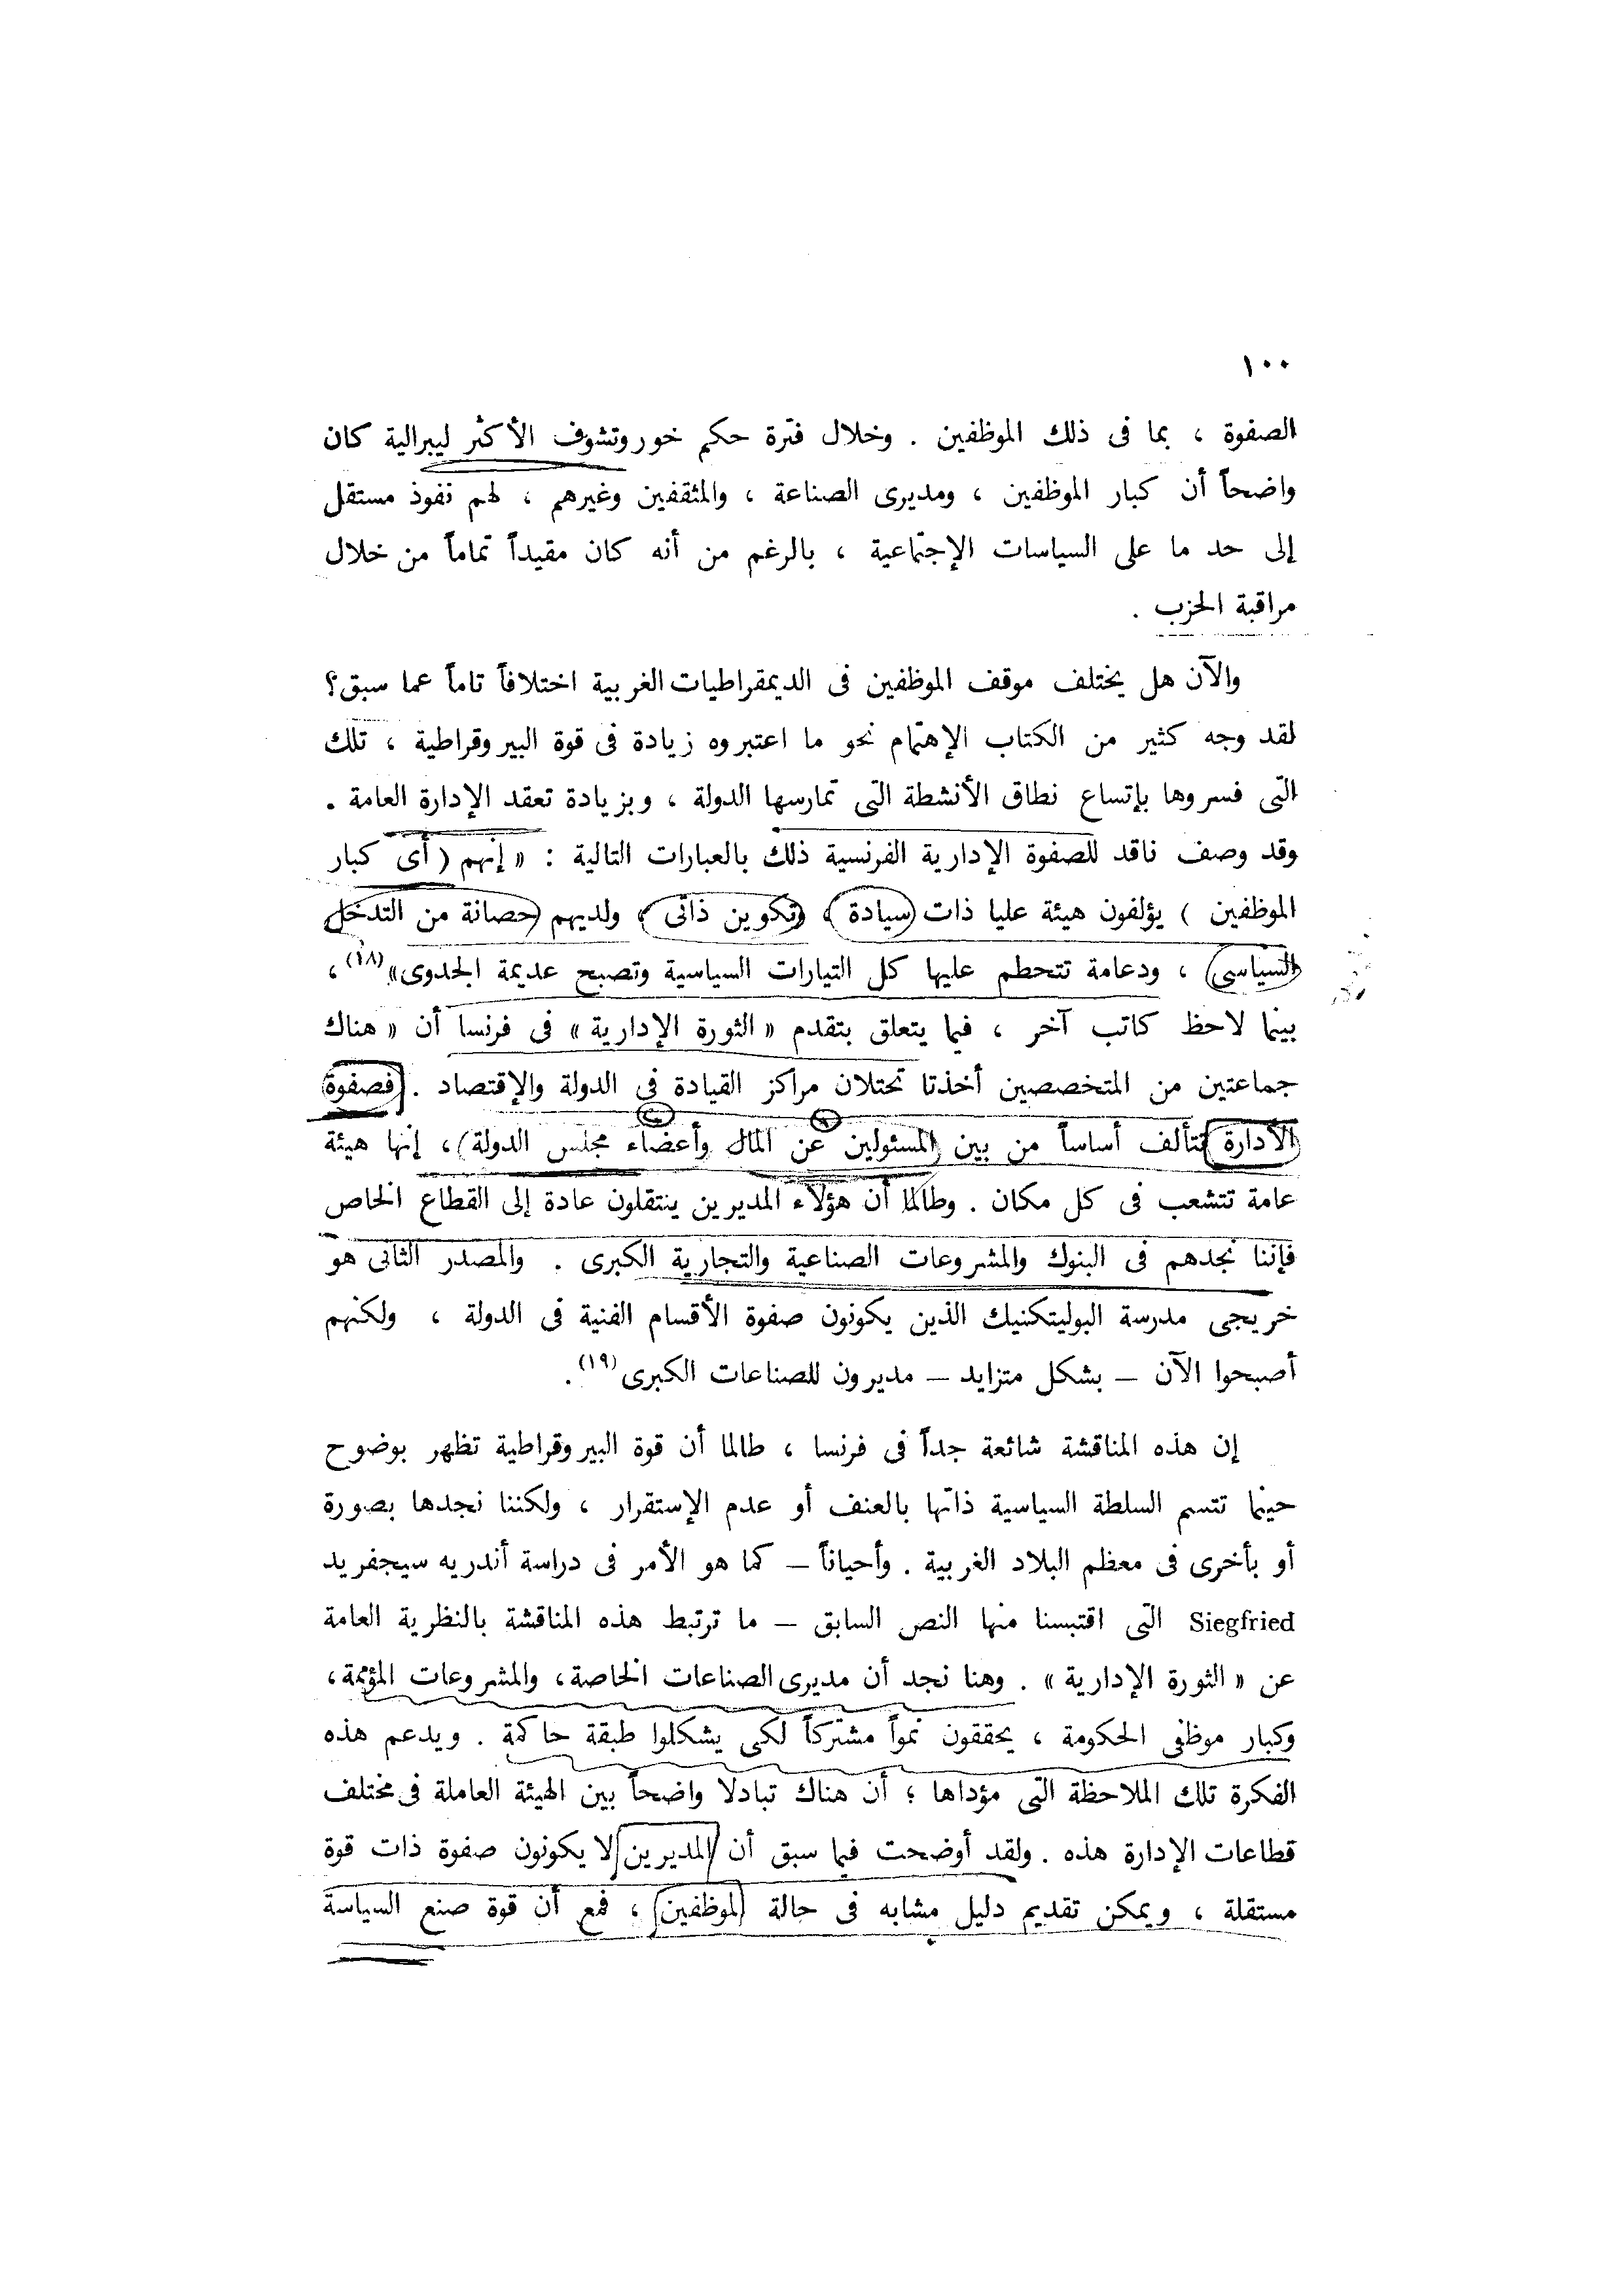 ١٠٠
الصفوة ، بما فى ذلك الموظفين . وخلال فترة حكم خوروتشوف الأكثر ليبرالية كان
واضحاً أن كبار الموظفين ، ومديرى الصناعة ، والمثقفين وغيرهم ، لهم نفوذ مستقل
إلى حد ما على السياسات الإجتماعية ، بالرغم من أنه كان مقيداً تماماً من خلال
مراقبة الحزب .
والآن هل يختلف موقف الموظفين فى الديمقراطيات الغربية اختلافاً تاماً عما سبق؟
لقد وجه كثير من الكتاب الإهتمام نحو ما اعتبروه زيادة فى قوة البيروقراطية ، تلك
التى فسروها بإتساع نطاق الأنشطة التى تمارسها الدولة ، وبزيادة تعقد الإدارة العامة .
وقد وصف ناقد للصفوة الإدارية الفرنسية ذلك بالعبارات التالية : « إنهم ( أى كبار
الموظفين ) يؤلفون هيئة عليا ذات سيادة ، وتكوين ذاتى ، ولديهم حصانة من التدخل
السياسى ، ودعامة تتحطم عليها كل التيارات السياسية وتصبح عديمة الجدوى»(١٨) ،
بينما لاحظ كاتب آخر ، فيما يتعلق بتقدم « الثورة الإدارية » فى فرنسا أن « هناك
جماعتين من المتخصصين أخذتا تحتلان مراكز القيادة فى الدولة والإقتصاد . فصفوة
الأدارة تتألف أساساً من بين المسئولين عن المال وأعضاء مجلس الدولة ، إنها هيئة
عامة تتشعب فى كل مكان . وطالما أن هؤلاء المديرين ينتقلون عادة إلى القطاع الخاص
فإننا نجدهم فى البنوك والمشروعات الصناعية والتجارية الكبرى . والمصدر الثانى هو
خريجى مدرسة البوليتكنيك الذين يكونون صفوة الأقسام الفنية فى الدولة ، ولكنهم
أصبحوا الآن – بشكل متزايد – مديرون للصناعات الكبرى (١٩) .
إن هذه المناقشة شائعة جداً فى فرنسا ، طالما أن قوة البيروقراطية تظهر بوضوح
حينما تتسم السلطة السياسية ذاتها بالعنف أو عدم الإستقرار ، ولكننا نجدها بصورة
أو بأخرى فى معظم البلاد الغربية . وأحياناً – كما هو الأمر فى دراسة أندريه سيجفريد
Siegfried التى اقتبسنا منها النص السابق – ما ترتبط هذه المناقشة بالنظرية العامة
عن « الثورة الإدارية » . وهنا نجد أن مديرى الصناعات الخاصة، والمشروعات المؤممة،
وكبار موظفى الحكومة ، يحققون نمواً مشتركاً لكى يشكلوا طبقة حاكمة . ويدعم هذه
الفكرة تلك الملاحظة التى مؤداها ؛ أن هناك تبادلا واضحاً بين الهيئة العاملة فى مختلف
قطاعات الإدارة هذه . ولقد أوضحت فيما سبق أن المديرين لا يكونون صفوة ذات قوة
مستقلة ، ويمكن تقديم دليل مشابه فى حالة الموظفين ، فمع أن قوة صنع السياسة